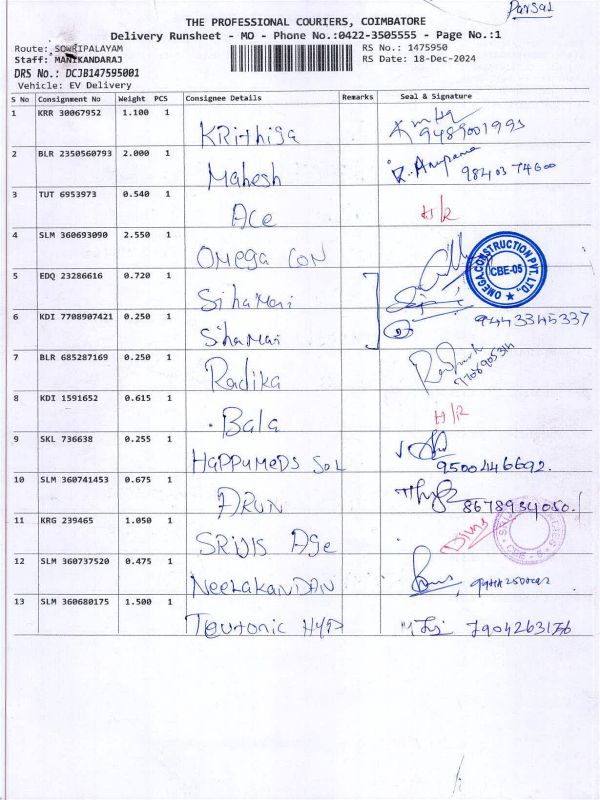 Parsal
THE PROFESSIONAL COURIERS, COIMBATORE
Delivery Runsheet - MO - Phone No.:0422-3505555 - Page No.:1
Route: SOWRIPALAYAM RS No.: 1475950
Staff: MANIKANDARAJ RS Date: 18-Dec-2024
DRS No.: DCJB147595001
Vehicle: EV Delivery
S No Consignment No Weight PCS Consignee Details Remarks Seal & Signature
1 KRR 30067952 1.100 1 KRithiga 9489001993
2 BLR 2350560793 2.000 1 Mahesh R. Anupama 9840374600
3 TUT 6953973 0.540 1 ACe H/R
4 SLM 360693090 2.550 1 OMega CON OMEGA CONSTRUCTION PVT. LTD., CBE-05
5 EDQ 23286616 0.720 1 SihaMari
6 KDI 7708907421 0.250 1 SihaMari 9443345337
7 BLR 685287169 0.250 1 Radika
8 KDI 1591652 0.615 1 Bala H/R
9 SKL 736638 0.255 1 HAPPYMEDS SOL 9500446692.
10 SLM 360741453 0.675 1 ARUN 8678934050.
11 KRG 239465 1.050 1 SRIJIS Age
12 SLM 360737520 0.475 1 NEELAKANDAN
13 SLM 360680175 1.500 1 Teutonic HYD 7904263156